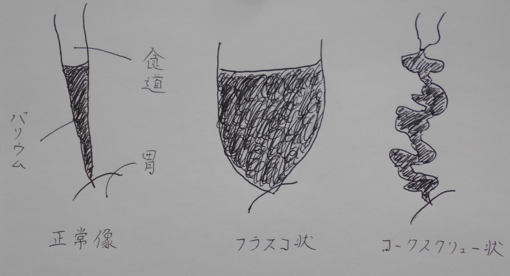 食道
バリウム
胃
正常像
フラスコ状
コークスクリュー状